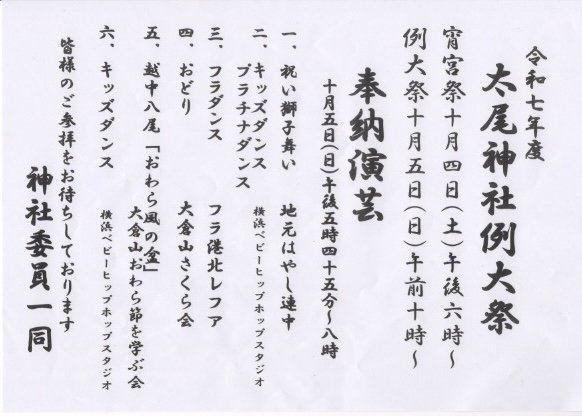 令和七年度
太尾神社例大祭
宵宮祭十月四日(土)午後六時～
例大祭十月五日(日)午前十時～
奉納演芸
十月五日(日)午後五時四十五分～八時
一、祝い獅子舞い 地元はやし連中
二、キッズダンス
プラチナダンス 横浜ベビーヒップホップスタジオ
三、フラダンス フラ港北レフア
四、おどり 大倉山さくら会
五、越中八尾「おわら風の盆」
大倉山おわら節を学ぶ会
六、キッズダンス 横浜ベビーヒップホップスタジオ
皆様のご参拝をお待ちしております
神社委員一同